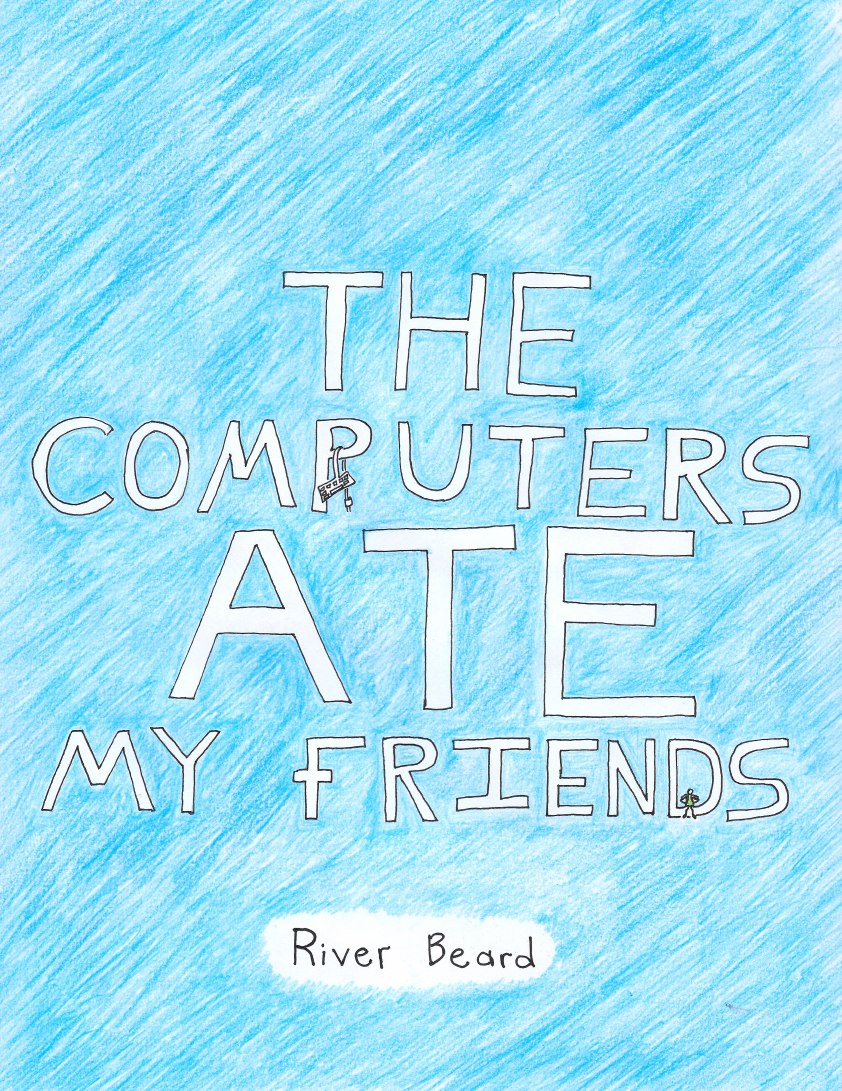 THE
COMPUTERS
ATE
MY FRIENDS
River Beard